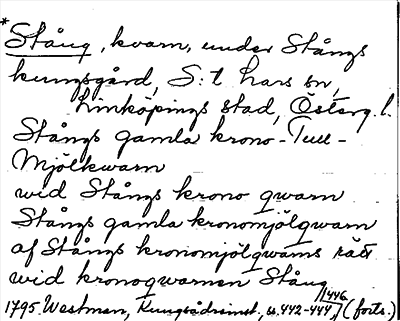 * Stång, kvarn, under Stångs
kungsgård, S:t Lars sn,
Linköpings stad, Österg. l.
Stångs gamla krono-Tull-
Mjölkwarn
wid Stångs krono qwarn
Stångs gamla kronomjölqwarn
af Stångs kronomjölqwarns rätt
wid kronoqwarnen Stång
1795 Westman, Kungsådreinst., s. 442-444, 1446 (forts.)